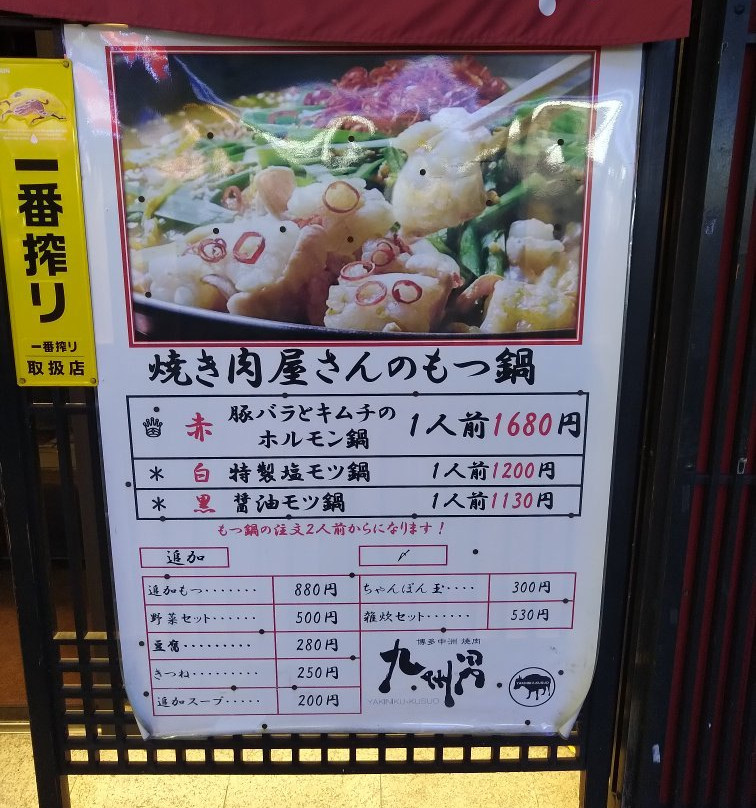 一番搾り
一番搾り
取扱店
焼き肉屋さんのもつ鍋
赤 豚バラとキムチの
ホルモン鍋 1人前1680円
＊ 白 特製塩モツ鍋 1人前1200円
＊ 黒 醤油モツ鍋 1人前1130円
もつ鍋の注文2人前からになります!
追加
追加もつ・・・・・・・ 880円
野菜セット・・・・・・ 500円
豆腐・・・・・・・・・ 280円
きつね・・・・・・・・ 250円
追加スープ・・・・・ 200円
〆
ちゃんぽん玉・・・・ 300円
雑炊セット・・・・・・ 530円
博多中洲 焼肉
YAKINIKU-KUSUO
YAKINIKU-KUSUO